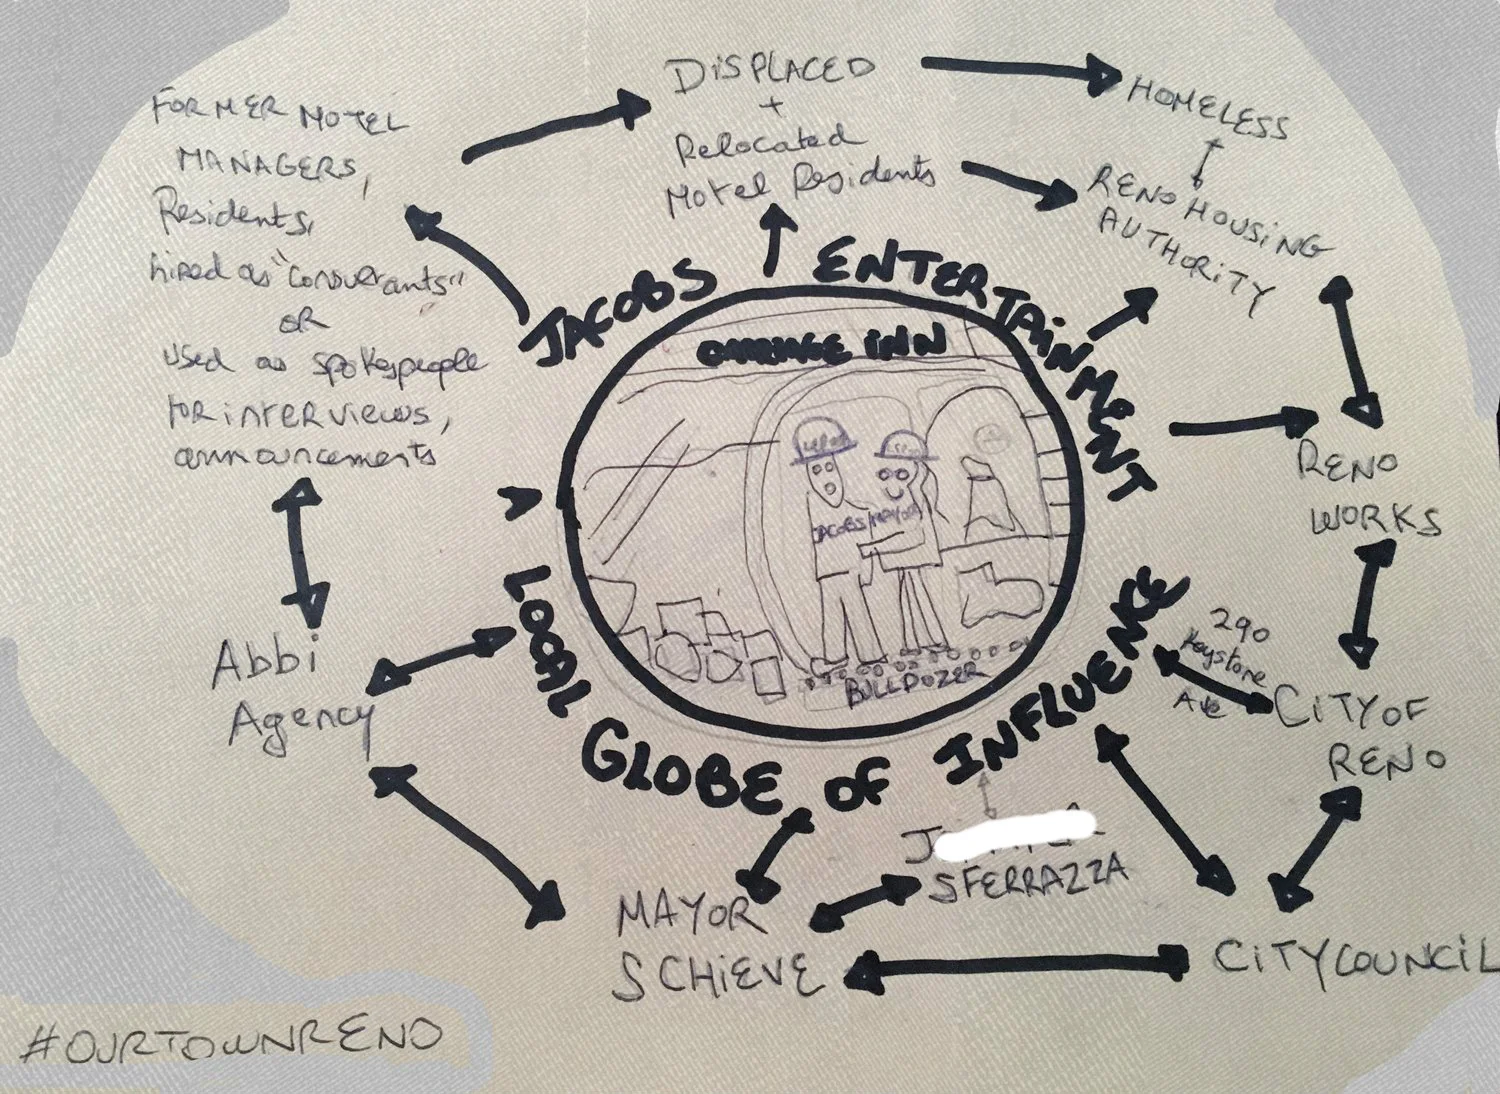 FORMER MOTEL
MANAGERS,
Residents,
hired as "consultants"
OR
used as spokespeople
for interviews,
announcements
DisPLACED
+
Relocated
Motel Residents
HOMELESS
RENO HOUSING
AUTHORITY
RENO
WORKS
290
Keystone
Ave
CiTY OF
RENO
CiTY COUNCiL
J
SFERRAZZA
MAYOR
SCHiEVE
Abbi
Agency
JACOBS ENTERTAiNMENT
LOCAL GLOBE OF INFLUENCE
CARRIAGE iNN
JACOBS MAYOR
BULLDOZER
#OURTOWNRENO